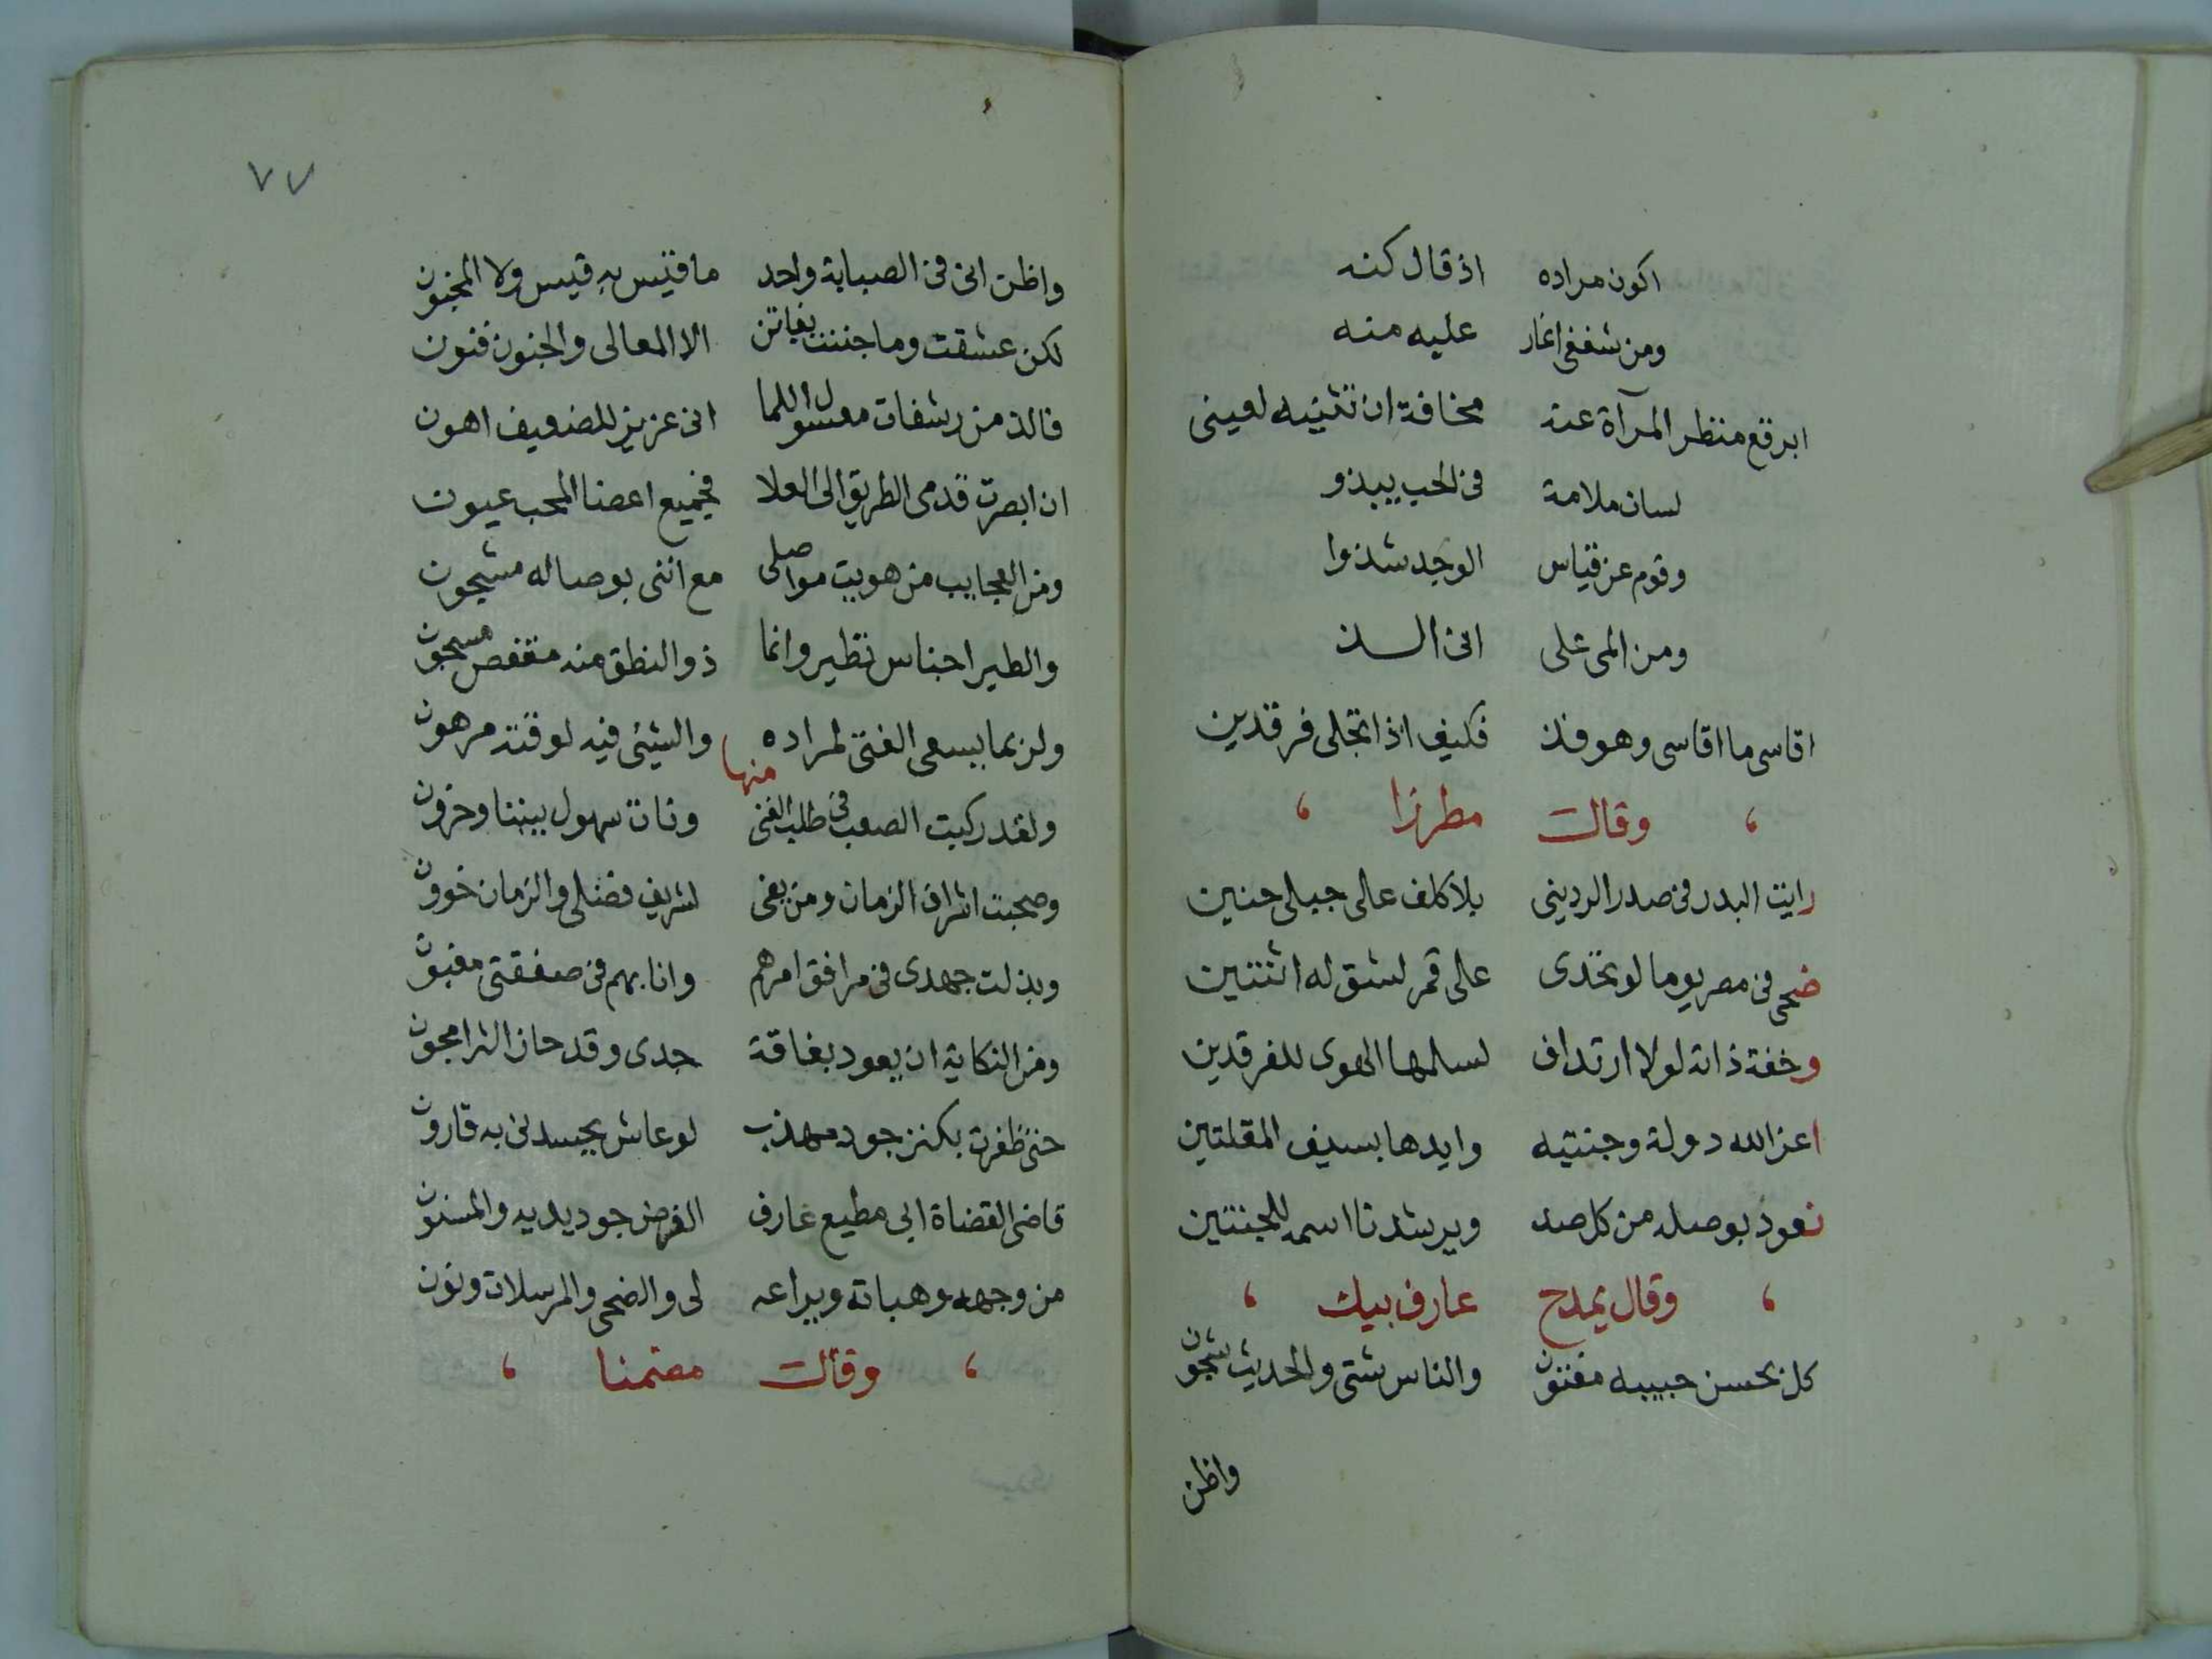 اكون مراده اذ قال كنه
ومن شغفى اغار عليه منه
ابرقع منظر المرآة عنه مخافة ان تثنيه لعينى
لسان ملامة فى الحب يبذو
وقوم عن قياس الوجد شذوا
ومن المى على انى السذ
اقاسى ما اقاسى وهو فذ فكيف اذا تجلى فرقدين
، وقال مطرزا ،
رايت البدر فى صدر الردينى بلا كلف على جبلى حنين
ضحى فى مصر يوما لو تحدى على قمر لشق له اثنتين
وخفة ذاته لولا ارتداف لسلمها الهوى للفرقدين
اعز الله دولة وجنتيه وايدها بسيف المقلتين
نعوذ بوصله من كل صد ويرشدنا اسمه للجنتين
، وقال يمدح عارف بيك ،
كل بحسن حبيبه مفتون والناس شتى والحديث شجون
واظن
٧٧
واظن انى فى الصبابة واحد ما قيس به قيس ولا المجنون
لكن عشقت وما جننت بفاتن الا المعالى والجنون فنون
فالذ من رشفات معسول اللما انى عزيز للضعيف اهون
ان ابصرت قدمى الطريق الى العلا فجميع اعضا المحب عيون
ومن العجايب من هويت مواصلى مع اننى بوصاله مشجون
والطير اجناس تطير وانما ذو النطق منه مقفص مسجون
ولربما يسعى الفتى لمراده والشيئ فيه لوقته مرهون
منها
ولقد ركبت الصعب فى طلب الغنى ونات سهول بيننا وحزون
وصحبت اشراف الزمان ومن يفى لشريف فضلى والزمان خوون
وبذلت جهدى فى مرافق امرهم وانا بهم فى صفقتى مغبون
ومن النكاية ان يعود بفاقة جدى وقد حاز الثرا مجون
حتى ظفرت بكنز جود مهذب لو عاش يحسدنى به قارون
قاضى القضاة ابى مطيع عارف الفرض جود يديه والمسنون
من وجهه وهباته ويراعه لى والضحى والمرسلات ونون
، وقال مضمنا ،